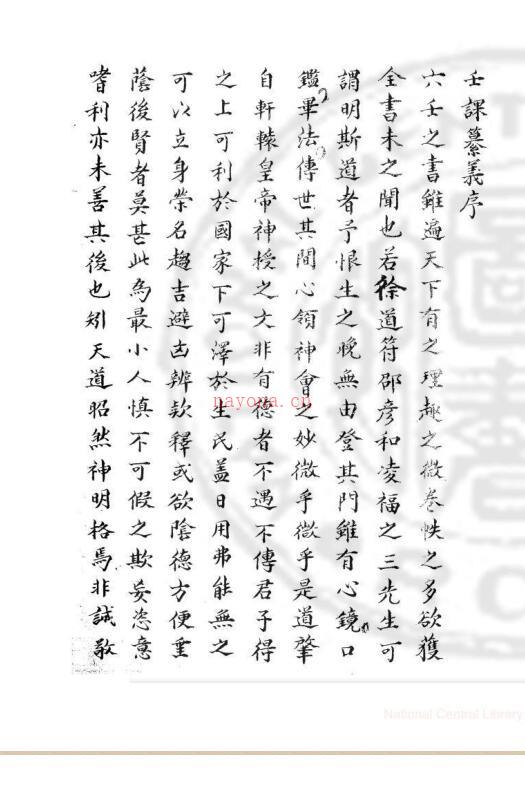 壬課纂義序
六壬之書雖遍天下有之理趣之微卷帙之多欲獲
全書未之聞也若徐道符邵彥和凌福之三先生可
謂明斯道者予恨生之晚無由登其門雖有心鏡口
鑑畢法傳世其間心領神會之妙微乎微乎是道肇
自軒轅皇帝神授之文非有德者不遇不傳君子得
之上可利於國家下可澤於生民盖日用弗能無之
可以立身榮名趨吉避凶辨疑釋或欲陰德方便重
蔭後賢者莫甚此為最小人慎不可假之欺妄恣意
嗜利亦未善其後也矧天道昭然神明格焉非誠敬
payona.cn
National Central Library